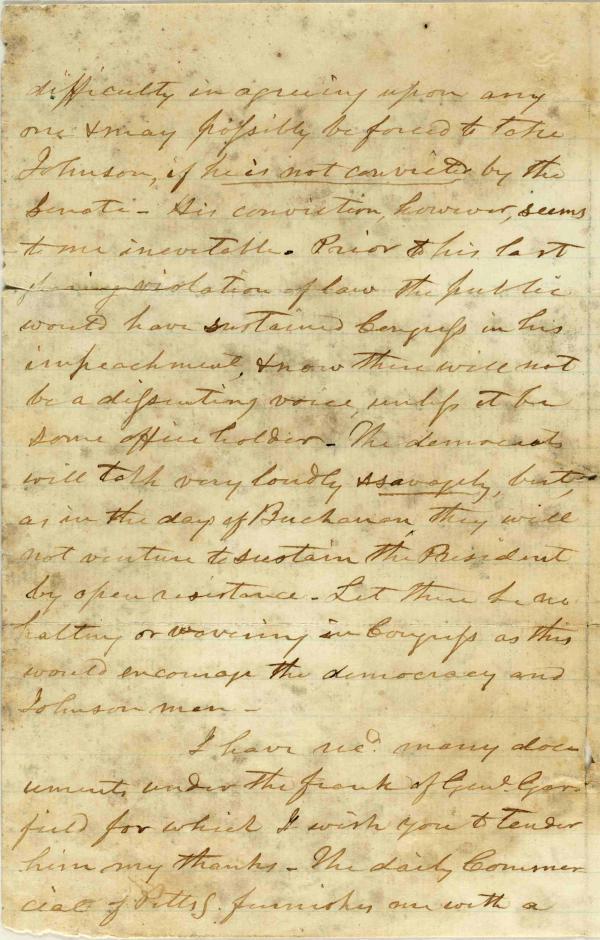 difficulty in agreeing upon any
one & may possibly be forced to take
Johnson, if he is not convicted by the
Senate - His conviction, however, seems
to me inevitable. Prior to his last
violation of law the public
would have sustained Congress in his
impeachment, & now there will not
be a dissenting voice, unless it be
some office holder - The democrats
will talk very loudly & savagely, but,
as in the days of Buchanan, they will
not venture to sustain the President
by open resistance - Let there be no
halting or wavering in Congress as this
would encourage the democracy and
Johnson men -
I have recd. many doc
uments under the frank of Genl. Gar
field for which I wish you to tender
him my thanks - The daily Commer
cial of Pittsg. furnishes me with a